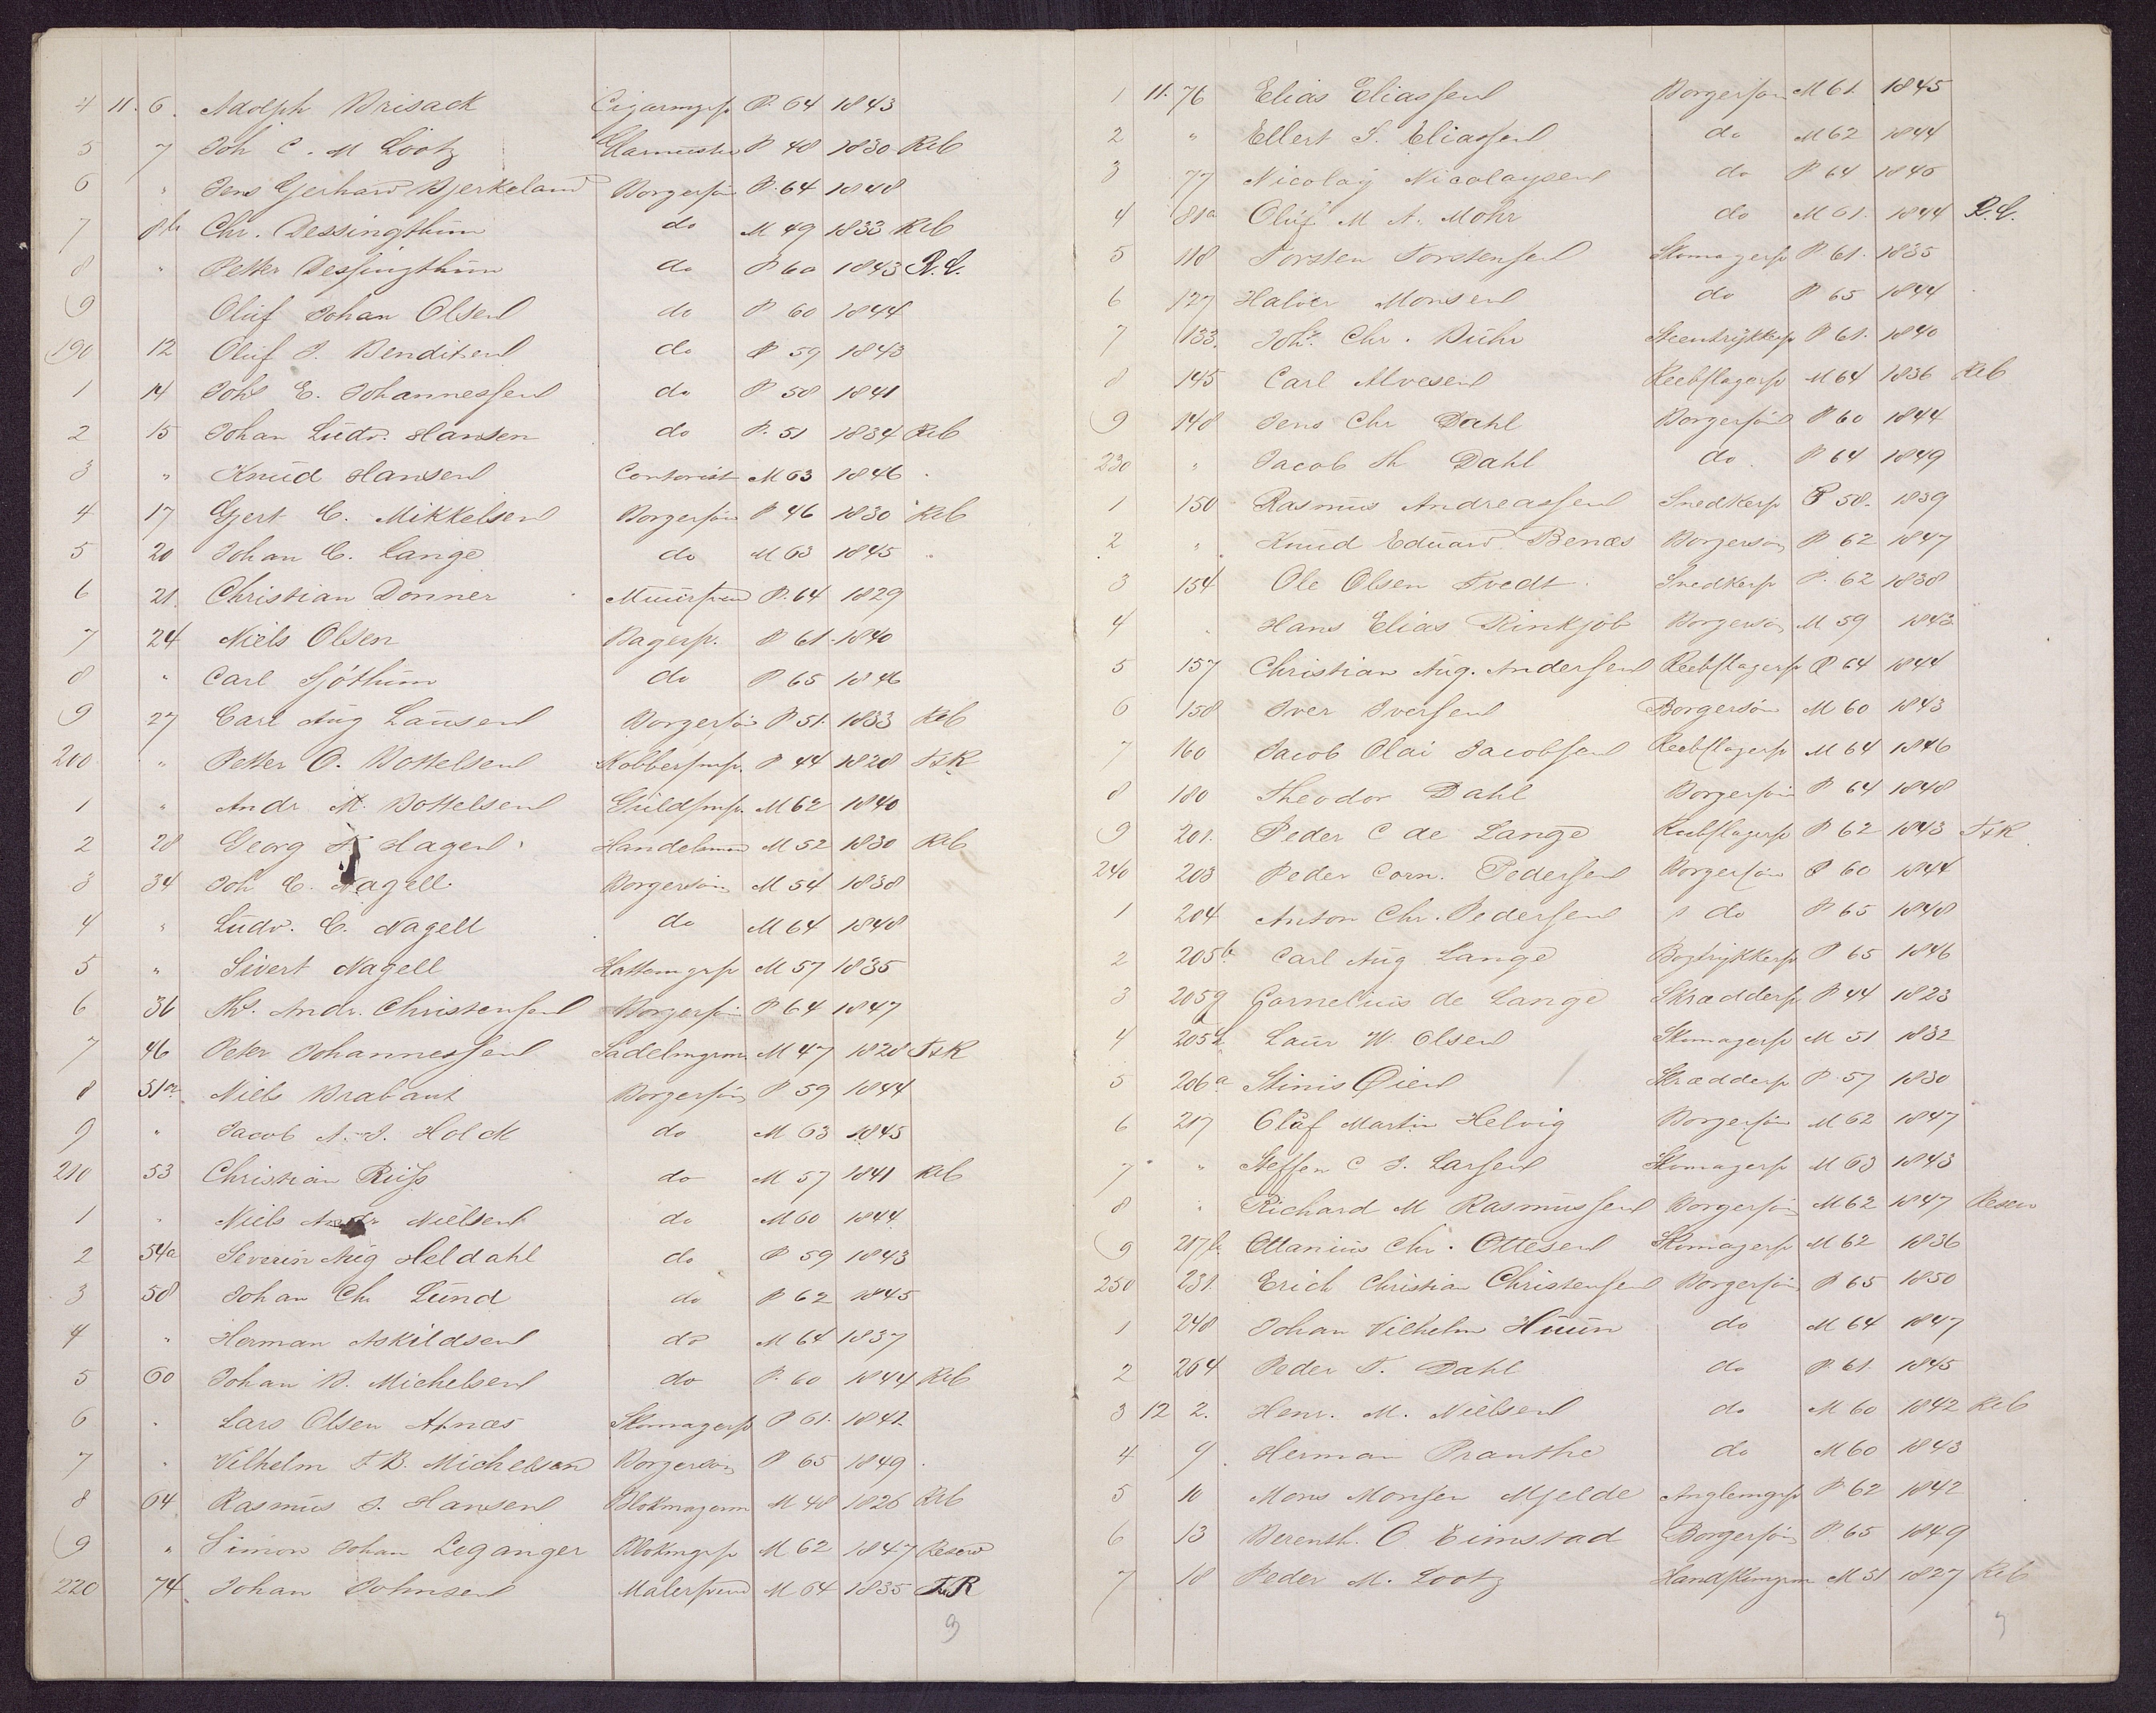 4 11. 6. Adolph Brisack Cigarmgrsv P. 64 1843
5 7 Joh C. M Lootz Glarmester P 48 1830 Reb
6 " Jens Gerhard Bjerkeland Borgersön P. 64 1848
7 8b Chr. Dessingthun do M 49 1833 Reb
8 " Petter Dessingthun do P 60 1843 R.C.
9 Oluf Johan Olsen do P 60 1844
190 12 Oluf J. Benditsen do P 59 1843
1 14 Johs E. Johannessen do P 58 1841
2 15 Johan Ludv. Hansen do P. 51 1834 Reb
3 " Knud Hansen Contorist M 63 1846
4 17 Gjert C. Mikkelsen Borgersön P 46 1830 Reb
5 20 Johan C. Lange do M 63 1845
6 21. Christian Donner Muursvend P. 64 1829
7 24 Niels Olsen Bagersv. P 61 1840
8 " Carl Sjöthun do P 65 1846
9 27 Carl Aug Lausen Borgersön P 51. 1833 Reb
200 " Petter O. Bottelsen Kobbersmsv. P 44 1828 F&R
1 " Andr. M. Bottelsen Guldsmsv. M 62 1840
2 28 Georg Hagen Handelsmand M 52 1830 Reb
3 34 Joh C. Nagell Borgersön M 54 1838
4 " Ludv. C. Nagell do M 64 1848
5 " Sivert Nagell Hattemgrsv M 57 1835
6 36 Ths. Andr. Christensen Borgersön P 64 1847
7 46 Peter Johannessen Sadelmgrm. M 47 1828 F&R
8 51a Niels Brabant Borgersön P 59 1844
9 " Jacob A. J. Holck do M 63 1845
210 53 Christian Russ do M 57 1841 Reb
1 " Niels Andr Nielsen do M 60 1844
2 54a Severin Aug Heldahl do P 59 1843
3 58 Johan Chr Lund do P 62 1845
4 " Herman Askildsen do M 64 1837
5 60 Johan B. Michelsen do P. 60 1844 Reb
6 " Lars Olsen Axnæs Skomagersv P 61. 1841.
7 " Vilhelm F. B. Michelsen Borgersön P 65 1849
8 64 Rasmus J. Hansen Blokmagerm M 48 1826 Reb
9 " Simon Johan Leganger Blokmgrsv M 62 1847 Reserv
220 74 Johan Johnsen Malersvend M 64 1835 F&R
9
1 11. 76 Elias Eliassen Borgersön M 61. 1845
2 " Ellert J. Eliassen do M 62 1844
3 77 Nicolay Nicolaysen do P 64 1846
4 81a Oluf M A. Mohr do M 61. 1844 R.C.
5 118 Torsten Torstensen Skomagersv P 61. 1835
6 127 Halver Monsen do P 65 1844
7 133. Johs. Chr. Buhr Steentrykkersv P 61. 1840
8 145 Carl Alvesen Reebslagersv M 64 1836 Reb
9 148 Jens Chr Dahl Borgersön P 60 1844
230 " Jacob Th Dahl do P 64 1849
1 150 Rasmus Andreassen Snedkersv P 58. 1839
2 " Knud Eduard Benæs Borgersön P 62 1847
3 154 Ole Olsen Tvedt Snedkersv P. 62 1838
4 " Hans Elias Rinkjöb Borgersön M 59 1843
5 157 Christian Aug. Andersen Reebslagersv P 64 1844
6 158 Iver Iversen Borgersön M 60 1843
7 160 Jacob Olai Jacobsen Reebslagersv M 64 1846
8 180 Theodor Dahl Borgersön P 64 1848
9 201. Peder C de Lange Reebslagersv P 62 1843 F&R
240 203 Peder Corn. Pedersen Borgersön P 60 1844
1 204 Anton Chr. Pedersen do P 65 1848
2 205b Carl Aug Lange Bogtrykkersv P 65 1846
3 205g Cornelius de Lange Skræddersv. P 44 1823
4 205h Laur W. Olsen Skomagersv M 51 1832
5 206a Stinis Öien Skræddersv P 57 1830
6 217 Olaf Martin Helvig Borgersön M 62 1847
7 " Steffen C J. Larsen Skomagersv M 63 1843
8 " Richard M Rasmussen Borgersön M 62 1847 Reserv
9 217b Ottanius Chr. Ottesen Skomagersv M 62 1836
250 231. Erich Christian Christensen Borgersön P 65 1850
1 248 Johan Vilhelm Huun do M 64 1847
2 264 Peder F. Dahl do P. 61. 1845
3 12 2. Henr. M. Nielsen do M 60 1842 Reb
4 9. Herman Pranthe do M 60 1843
5 10 Mons Monsen Mjelde Anglemgrsv P 62 1842
6 13 Berenth. O Eimstad Borgersön P. 65 1849
7 18 Peder M. Lootz Handskemgrm M 51 1827 Reb
9